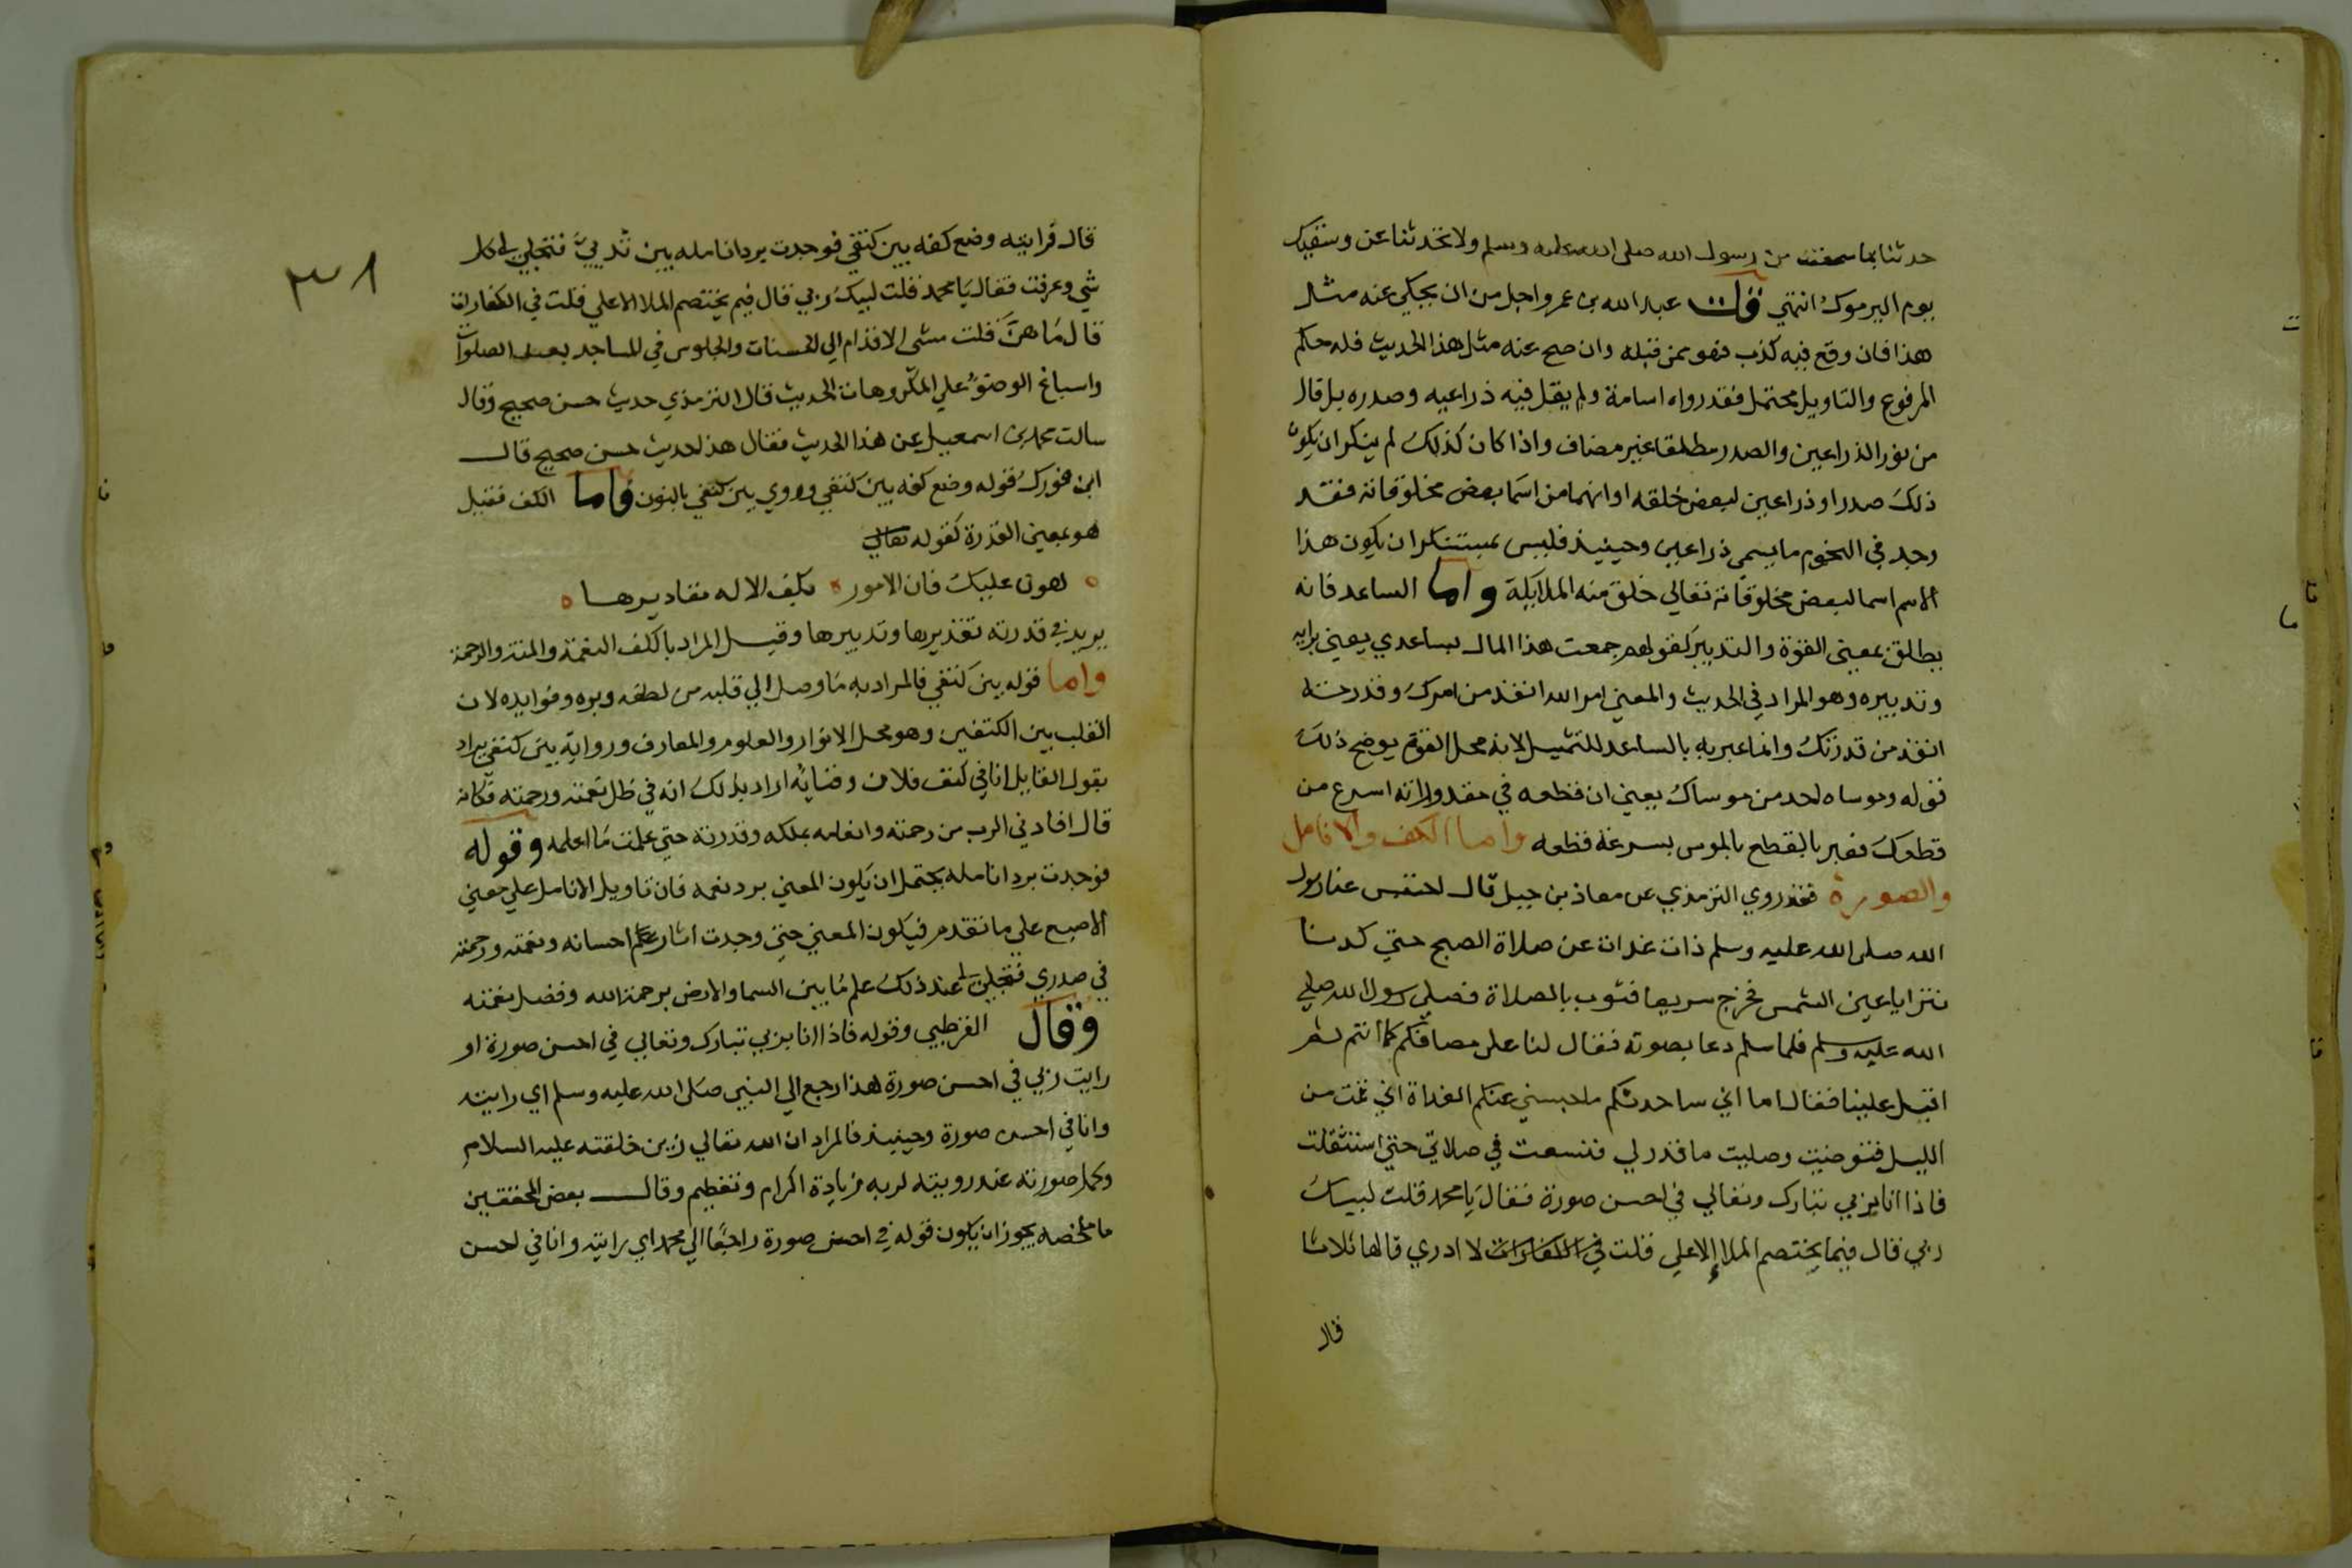 حدثنا بما سمعت من رسول الله صلى الله عليه وسلم ولا تحدثنا عن وسقيك
يوم اليرموك انتهي قلت عبد الله بن عمرو اجل من ان يحكي عنه مثل
هذا فان وقع فيه كذب فهو ممن قبله وان صح عنه مثل هذا الحديث فله حكم
المرفوع والتاويل محتمل فقد رواه اسامة ولم يقل فيه ذراعيه وصدره بل قال
من نور الذراعين والصدر مطلقا غير مضاف واذا كان كذلك لم ينكر ان يكون
ذلك صدرا وذراعين لبعض خلقه او انهما من اسما بعض مخلوقاته فقد
وجد في النجوم ما يسمي ذراعين وحينيذ فليس بمستنكر ان يكون هذا
الاسم اسما لبعض مخلوقاته تعالي خلق منه الملايكة واما الساعد فانه
يطلق بمعني القوة والتدبير كقولهم جمعت هذا المال بساعدي يعني برايه
وتدبيره وهو المراد في الحديث والمعني امر الله انفذ من امرك وقدرته
انفذ من قدرتك وانما عبر به بالساعد للتمثيل لانه محل القوة يوضح ذلك
قوله وموساه احد من موساك يعني ان قطعه في مقدوراته اسرع من
قطعك فعبر بالقطع بالموس بسرعة قطعه واما الكف والانامل
والصورة فقد روي الترمذي عن معاذ بن جبل قال احتبس عنا رسول
الله صلى الله عليه وسلم ذات غداة عن صلاة الصبح حتي كدنا
نترايا عين الشمس فخرج سريعا فثوب بالصلاة فصلي رسول الله صلي
الله عليه وسلم فلما سلم دعا بصوته فقال لنا علي مصافكم كما انتم ثم
اقبل علينا فقال اما اني ساحدثكم ما حبسني عنكم الغداة اني قمت من
الليل فتوضيت وصليت ما قدر لي فنعست في صلاتي حتي استثقلت
فاذا انا بربي تبارك وتعالي في احسن صورة فقال يا محمد قلت لبيك
ربي قال فيما يختصم الملا الاعلي قلت في الكفارات لا ادري قالها ثلاثا
قال
٣١
قال فرايته وضع كفه بين كتفي فوجدت برد انامله بين ثدييّ فتجلي لي كل
شي وعرفت فقال يا محمد قلت لبيك ربي قال فيم يختصم الملا الاعلي قلت في الكفارات
قال ما هن قلت مشي الاقدام الي الحسنات والجلوس في المساجد بعد الصلوات
واسباغ الوضوء علي المكروهات الحديث قال الترمذي حديث حسن صحيح وقال
سالت محمد بن اسمعيل عن هذا الحديث فقال هذا حديث حسن صحيح قال
ابن فورك قوله وضع كفه بين كتفي وروي بين كنفي بالنون واما الكف فقيل
هو بمعني القدرة كقوله تعالي
لهون عليك فان الامور بكف الاله مقاديرها
يريد في قدرته تقديرها وتدبيرها وقيل المراد بالكف النعمة والمنة والرحمة
واما قوله بين كتفي فالمراد به ما وصل الي قلبه من لطفه وبره وفوايده لان
القلب بين الكتفين وهو محل الانوار والعلوم والمعارف ورواية بين كنفي يراد
بقول القايل انا في كنف فلان وفنائه اراد بذلك انه في ظل نعمته ورحمته فكانه
قال افادني الرب من رحمته وانعامه بملكه وقدرته حتي علمت ما اعلمه وقوله
فوجدت برد انامله يحتمل ان يكون المعني برد نعمه فان تاويل الانامل علي معني
الاصبع علي ما تقدم فيكون المعني حتي وجدت اثار احسانه ونعمته ورحمته
في صدري فتجلي لي عند ذلك علم ما بين السما والارض برحمة الله وفضل نعمته
وقال القرطبي وقوله فاذا انا بربي تبارك وتعالي في احسن صورة او
رايت ربي في احسن صورة هذا رجع الي النبي صلى الله عليه وسلم اي رايته
وانا في احسن صورة وحينيذ فالمراد ان الله تعالي زين خلقته عليه السلام
وكمل صورته عند رويته لربه زيادة اكرام وتعظيم وقال بعض المحققين
ما ملخصه يجوز ان يكون قوله في احسن صورة راجعا الي محمد اي رايته وانا في احسن